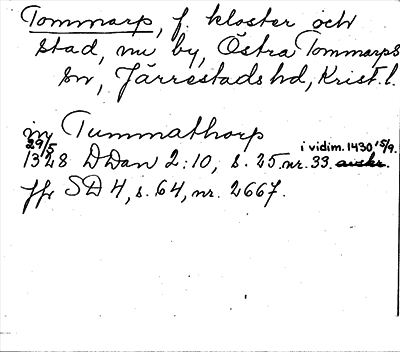 Tommarp, f. kloster och
stad, nu by, Östra Tommarps
sn, Järrestads hd, Krist. l.
in Tummathorp
29/5 1328 DDan 2:10, s. 25 nr. 33. i vidim. 1430 15/9. avskr.
jfr SD 4, s. 64, nr. 2667.